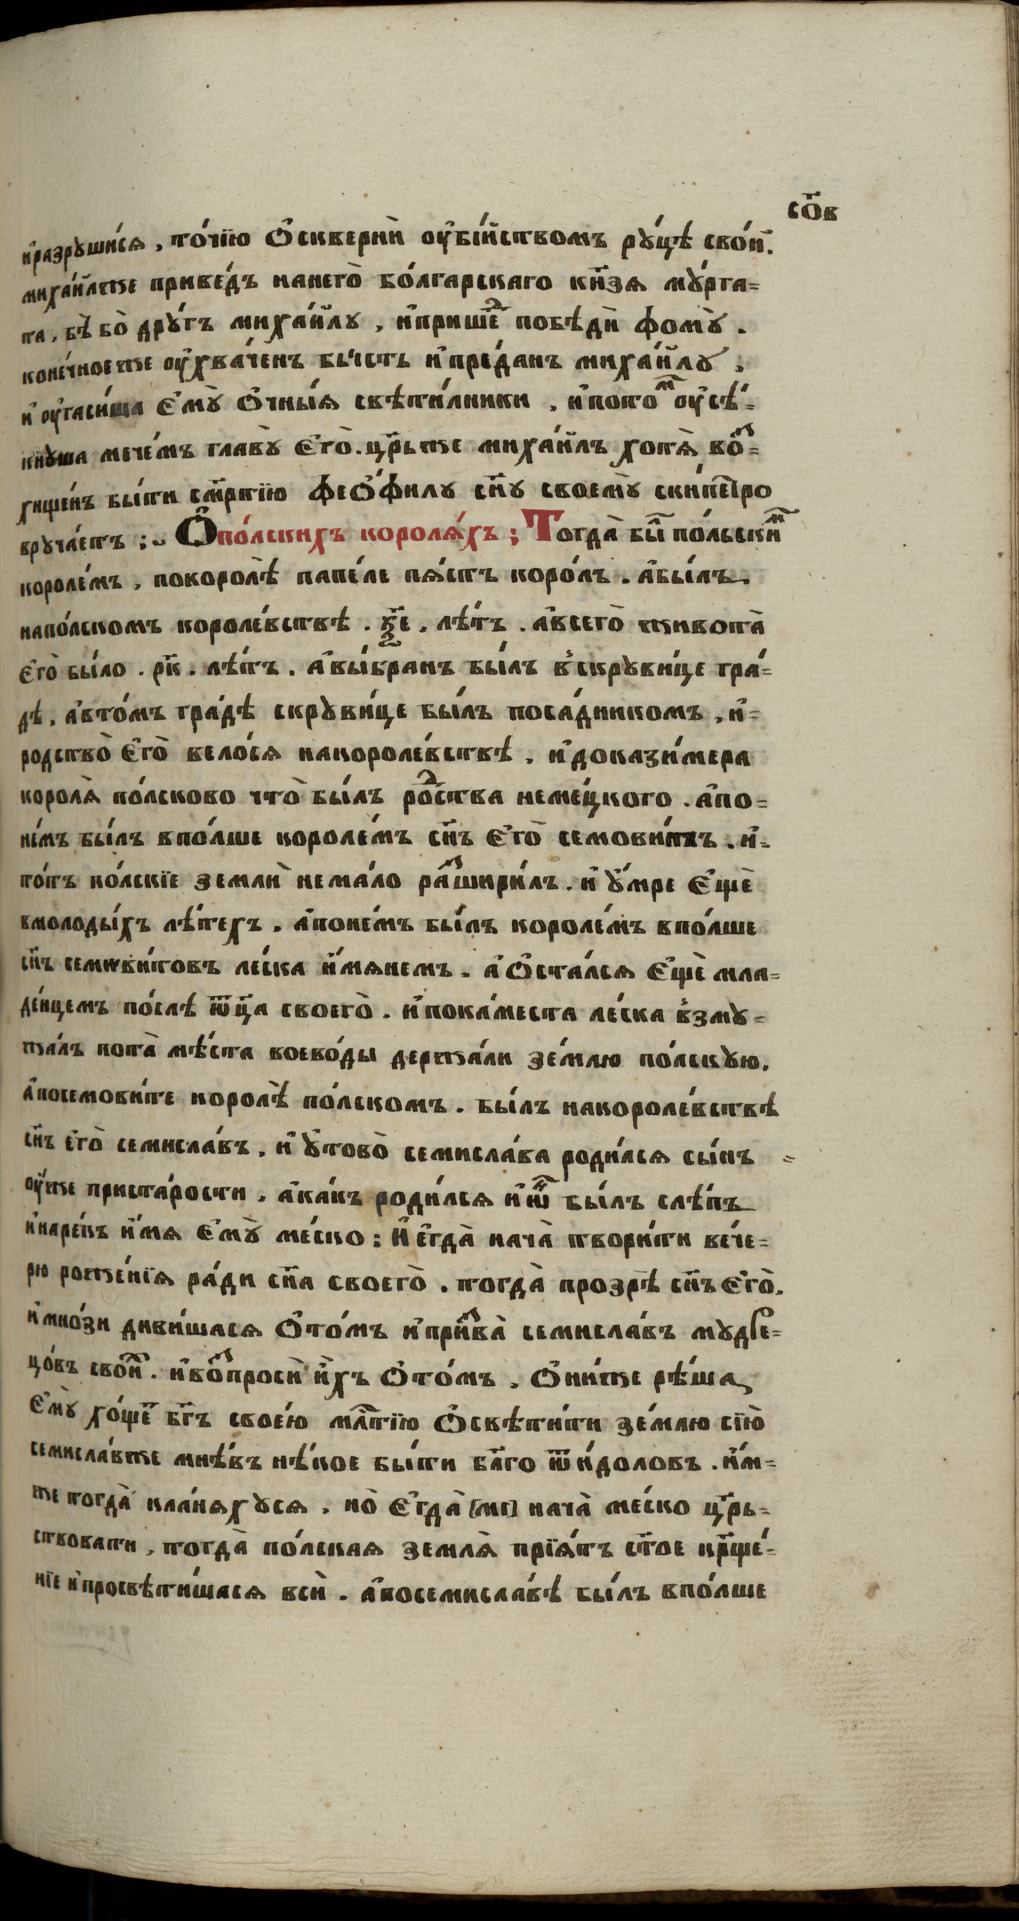 со҃в
и҆разрꙋши́сѧ , то́чїю Ѻ҆сквернѝ оу҆бі́йствомъ рꙋ́цѣ свои҆̑ .
миха́йлъже приве́дъ нанего̀ бо́лгарскаго кн҃зѧ мꙋ́рга-
та , бѣ̀ бо̀ дрꙋ́гъ миха́йлꙋ , и҆прише́д побѣдѝ фомꙋ̀ .
коне́чноеже оу҆хва́ченъ бы́сть и҆пре́данъ миха́йлꙋ ,
и҆ оу҆гаси́ша є҆мꙋ̀ Ѻ҆чны́ѧ свѣти́лники , и҆пото́м оу҆сѣ́-
кнꙋша мече́мъ главꙋ̀ є҆го̀ . цр҃ьже миха́йлъ хотѧ̀ во́с-
хище́нъ бы́ти см҃ртїю феѺ́филꙋ сн҃ꙋ своемꙋ̀ ски́петро
врꙋча́етъ ; Ѻ҆по́лскихъ королѧ́хъ ; Тогда̀ бы́л по́льским
короле́мъ , покоролѣ̀ папе́ле пѧ́стъ коро́лъ . а҆бы́лъ
напо́лскомъ короле́вствѣ . к҃е . лѣ́тъ . а҆всего̀ живота̀
є҆го̀ было . рк҃ . лѣ́тъ . а҆вы́бранъ бы́лъ в̾скрꙋви́це гра́-
дѣ , а҆вто́мъ гра́дѣ скрꙋви́це бы́лъ поса́дникомъ , и҆-
родство̀ є҆го̀ вело́сѧ накороле́вствѣ , и҆ доказиме́ра
королѧ̀ по́лсково что̀ бы́лъ ро́дства неме́цкого . а҆по-
не́мъ бы́лъ впо́лше короле́мъ сн҃ъ є҆го̀ семови́тъ . и҆-
то́тъ по́лскїе землѝ нема́ло расшири́лъ . и҆ ꙋ҆́мре є҆щѐ
вмолоды́хъ лѣ́техъ . а҆поне́мъ бы́лъ короле́мъ впо́лше
сн҃ъ семиви́товъ ле́ска и҆́мѧнемъ . а҆ Ѻ҆ста́лсѧ є҆щѐ мла-
де́нцемъ по́слѣ ѿц҃а своего̀ . и҆пока́места ле́ска в̾змꙋ-
жа́лъ пота̀ мѣ́ста воево́ды держа́ли зе́млю по́лскꙋю ,
а҆посемови́те королѣ̀ по́лскомъ . бы́лъ накороле́вствѣ
сн҃ъ є҆го̀ семисла́въ , и҆ ꙋ҆тово̀ семисла́ва роди́лсѧ сы́нъ -
оу҆же приста́рости , а҆ка́къ роди́лсѧ и҆ѿ бы́лъ слѣ́пъ
и҆наре́къ и҆́мѧ є҆мꙋ̀ ме́ско ; И҆ є҆гда̀ нача̀ твори́ти вече́-
рю роже́нїѧ ра́ди сн҃а своего̀ . тогда̀ прозрѣ̀ сн҃ъ є҆го̀ .
и҆мно́зи диви́шасѧ Ѻ҆то́мъ и҆призва̀ семисла́въ мꙋдре-
цо́въ свои́х . и҆вопросѝ и҆́хъ Ѻ҆то́мъ , Ѻ҆ни́же рѣ́ша
є҆мꙋ̀ хо́щет бг҃ъ свое́ю мл҃тїю Ѻ҆свѣти́ти зе́млю сїю̀
семисла́вже мнѣ́въ нѣ́кое бы́ти бл҃го ѿи́доловъ . и҆́м-
же тогда̀ кла́нѧхꙋсѧ , но̀ є҆гда̀ [мг] нача̀ ме́ско цр҃ь-
ствовати , тогда̀ по́лскаѧ землѧ̀ прїѧ́тъ ст҃ое кр҃ще́-
нїе и҆просвѣти́шасѧ всѝ . а҆посемисла́вѣ бы́лъ впо́лше